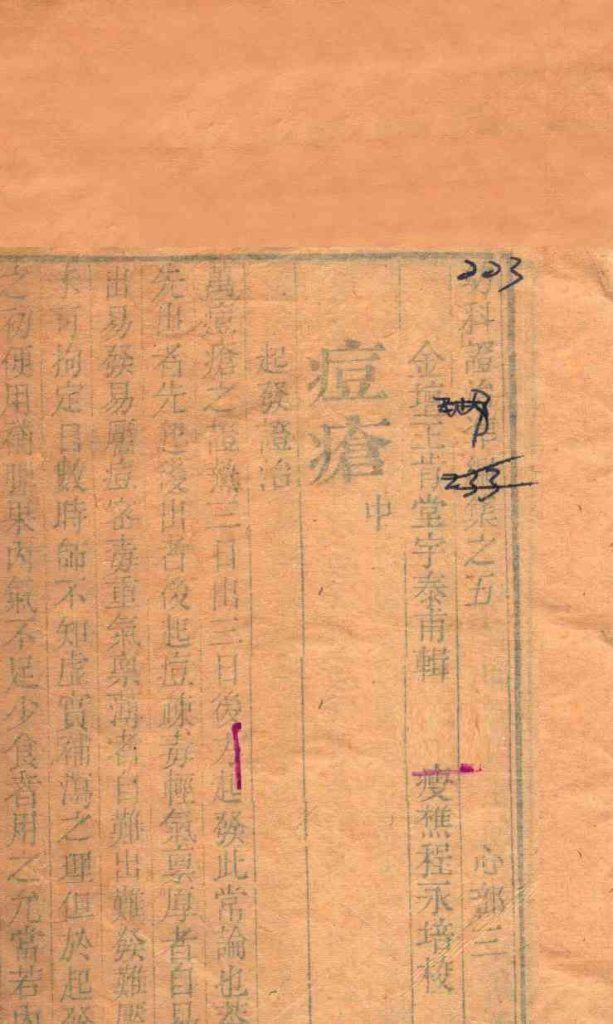 223
233
科證集之五 心部三
金壇王肯堂宇泰甫輯 瘦樵程永培校
痘瘡 中
起發證治
萬痘瘡之證熱三日出三日後方起發此常論也蓋
先出者先起後出者後起痘疎毒輕氣禀厚者自易
出易發易靨痘密毒重氣禀薄者自難出難發難靨
不可拘定日數時師不知虛實補瀉之理但於起發
之初便用補脾果內氣不足少食者用之允當若內